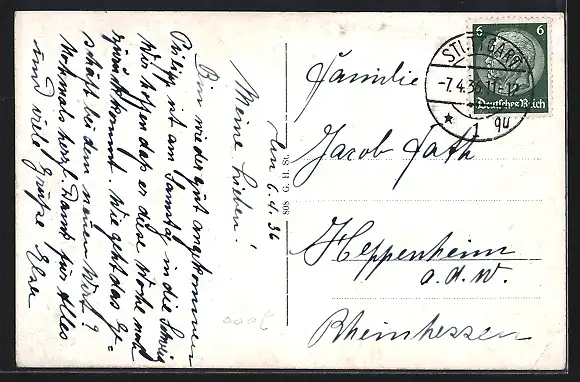 den 6.4.36
Meine Lieben!
Bin wieder gut angekommen
Philipp ist am Samstag in die Schweiz
Wir hoffen daß er diese Woche noch
zurückkommt. Wie geht das Ge-
schäft bei dem neuen Wirt?
Nochmals herzl. Dank für Alles
und viele Grüße Elsa
808 G. H. St.
6 6
Deutsches Reich
STUTTGART
-7.4.36.11-12
* 1 9u
Familie
Jacob
Heppenheim
a.d.W.
Rheinhessen